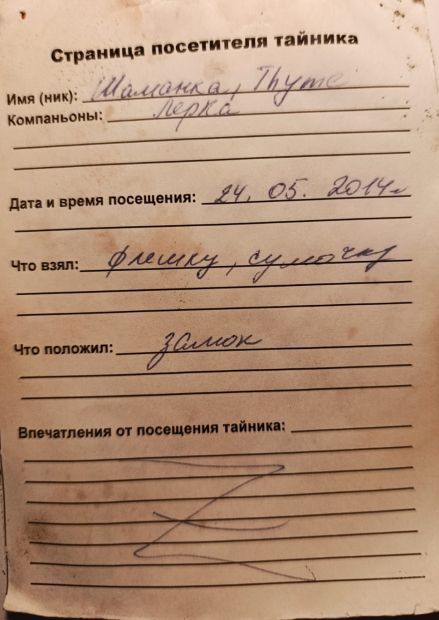 Страница посетителя тайника
Имя (ник): Шаманка, Thyme
Компаньоны: Лерка
Дата и время посещения: 24. 05. 2014г
Что взял: флешку, сумочку
Что положил: замок
Впечатления от посещения тайника: